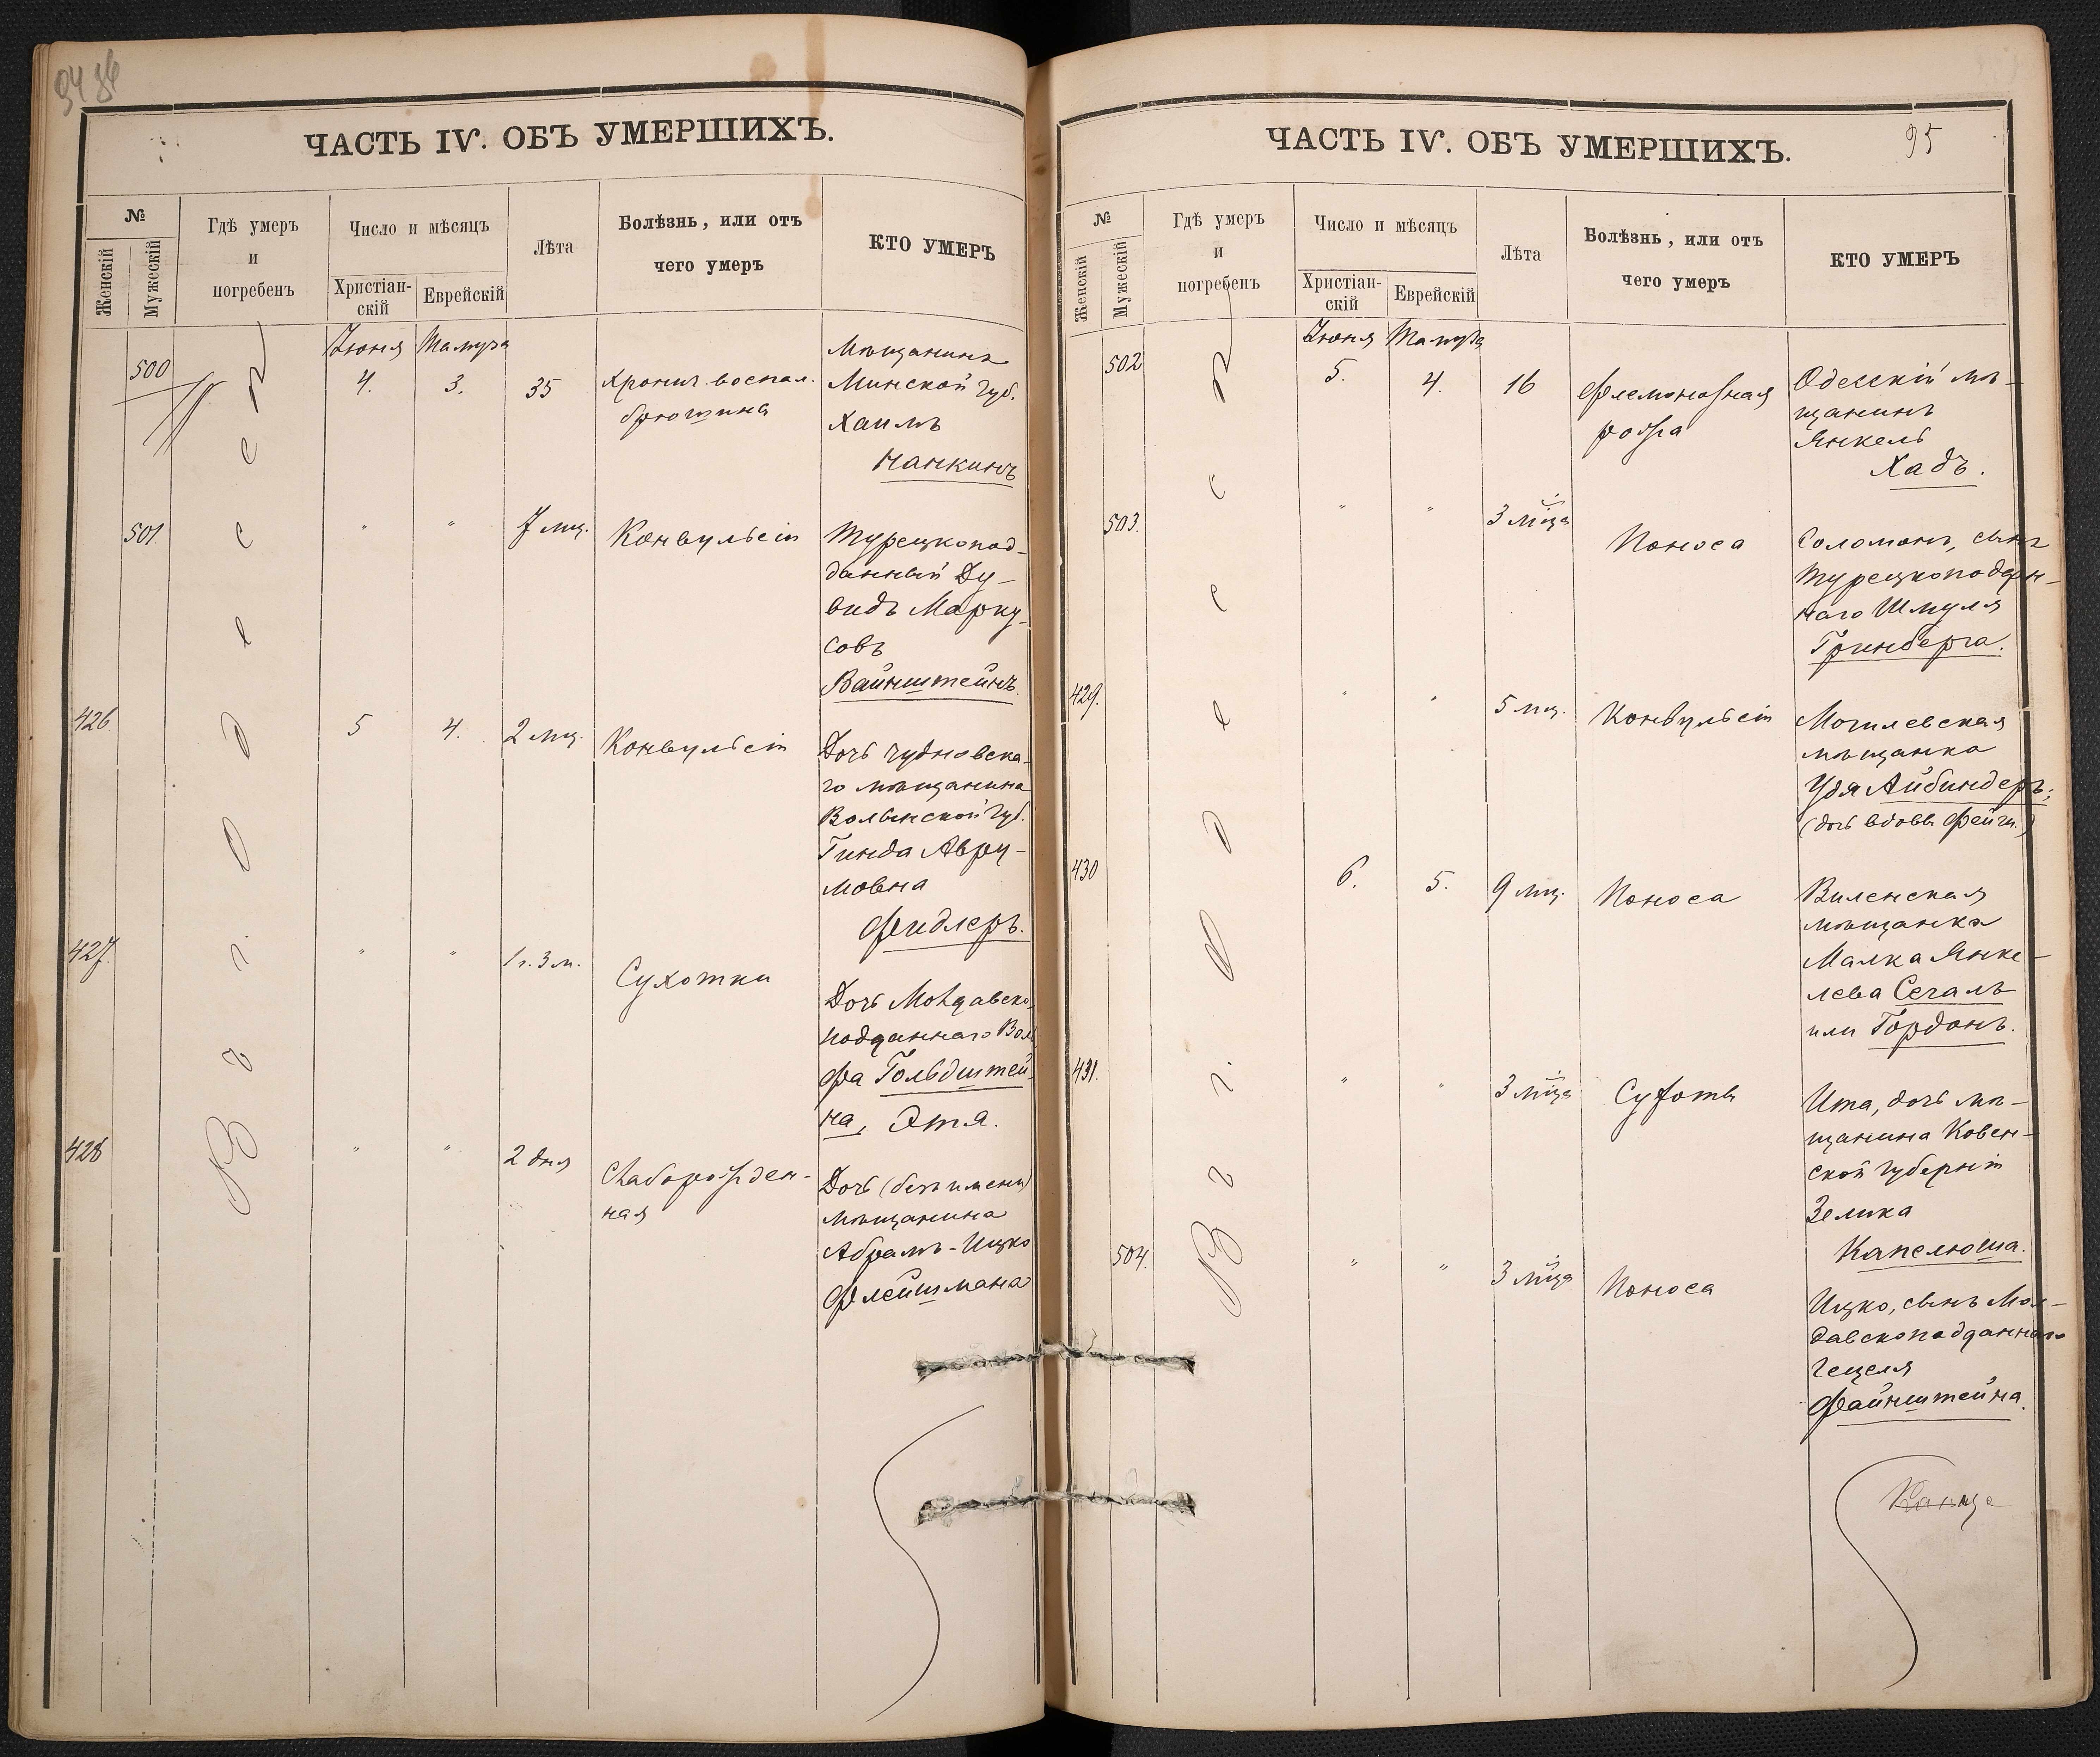 94
ЧАСТЬ IV. ОБЪ УМЕРШИХЪ.
№
Женскій
Мужескій
Гдѣ умеръ
и
погребенъ
Число и мѣсяцъ
Христіан-
скій
Еврейскій
Лѣта
Болѣзнь, или отъ
чего умеръ
КТО УМЕРЪ
Въ г. Одессѣ
Іюня
Тамуза
500
4.
3.
35
Хронич. воспал.
брюшина
Мѣщанинъ
Минской губ.
Хаимъ
Нанкинъ
501.
"
"
7 мц.
Конвульсіи
Турецкопод-
данный Ду-
видъ Марку-
совъ
Вайнштейнъ.
426.
5
4.
2 мц.
Конвульсіи
Дочь чудновска-
го мѣщанина
Волынской губ.
Гинда Авру-
мовна
Фидлеръ.
427.
"
"
1 г. 3 м.
Сухотки
Дочь Молдавско
подданнаго Воль
фа Гольдштей-
на, Этя.
428
"
"
2 дня
Слаборожден-
ная
Дочь (безъ имени)
мѣщанина
Абрамъ-Ицко
Флейшмана
ЧАСТЬ IV. ОБЪ УМЕРШИХЪ.
95
№
Женскій
Мужескій
Гдѣ умеръ
и
погребенъ
Число и мѣсяцъ
Христіан-
скій
Еврейскій
Лѣта
Болѣзнь, или отъ
чего умеръ
КТО УМЕРЪ
Въ г. Одессѣ
Іюня
Тамуза
502
5.
4.
16
Флегмонозная
рожа
Одесскій мѣ-
щанинъ
Янкель
Хадъ.
503.
"
"
3 мца
Поноса
Соломонъ, сынъ
турецкоподдан-
наго Шмуля
Гринберга.
429.
"
"
5 мц.
Конвульсіи
Могилевская
мѣщанка
Удя Айбиндеръ;
(дочь вдовы Фейги.)
430
6.
5.
9 мц.
Поноса
Виленская
мѣщанка
Малка Янке-
лева Сегаль
или Гордонъ.
431.
"
"
3 мца
Сухоты
Ита, дочь мѣ-
щанина Ковен-
ской губерніи
Зелика
Капелюша.
504.
"
"
3 мца
Поноса
Ицко, сынъ Мол-
давскоподданнаго
Гецеля
Файнштейна.